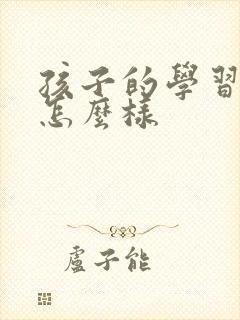 孩子的學習
怎麼樣
盧子能